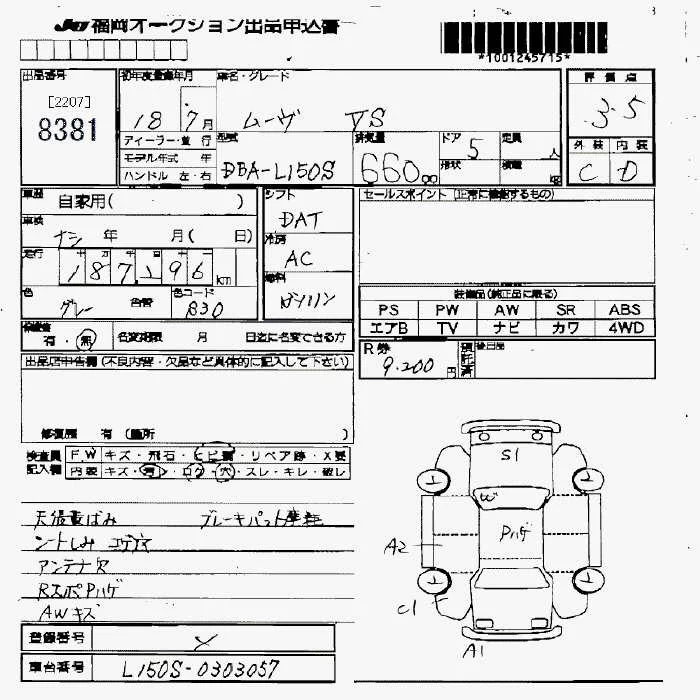 JU 福岡オークション出品申込書
*1001245715*
出品番号
[2207]
8381
初年度登録年月
18 . 7月
車名・グレード
ムーヴ VS
評価点
3.5
外装 内装
C D
ディーラー・並行
モデル年式 年
ハンドル 左・右
型式
DBA-L150S
排気量
660.00
ドア 5
形状
定員 人
積載 kg
車歴
自家用( )
車検
ナシ 年 月( 日)
走行
十 万 千 百 十
187,196 km
色
グレー
色替
色コード
B30
シフト
DAT
冷房
AC
燃料
ガソリン
セールスポイント (正常に機能するもの)
装備品(純正品に限る)
PS PW AW SR ABS
エアB TV ナビ カワ 4WD
保証書
有・無
名変期限 月 日迄に名変できる方
R券
9.200円
預託済
後日品
出品店申告欄(不良内容・欠品など具体的に記入して下さい)
修復歴 有 (箇所 )
検査員記入欄
F.W キズ・飛石・ヒビ割・リペア跡・X要
内装 キズ・汚・コゲ・穴・スレ・キレ・破レ
天張黄ばみ ブレーキパット摩耗
シートしみ
アンテナ欠
RスポPハゲ
AWキズ
登録番号
車台番号
L150S-0303057
S1
W
Pハゲ
A2
C1
A1